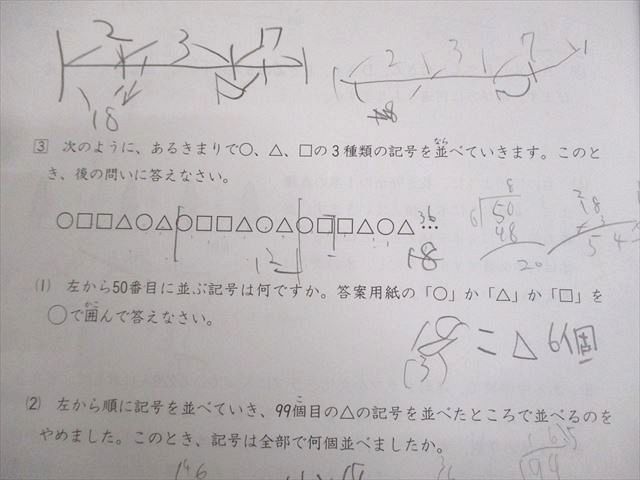 2 3 17
18
2 3 7
3 次のように、あるきまりで○、△、□の3種類の記号を並べていきます。このと
なら
き、後の問いに答えなさい。
○□□△○△○□□△○△○□□△○△…
36
12
18
8
6 50
48
20
18
54
(1) 左から50番目に並ぶ記号は何ですか。答案用紙の「○」か「△」か「□」を
かこ
○で囲んで答えなさい。
= △ 6個
(3)
(2) 左から順に記号を並べていき、99個目の△の記号を並べたところで並べるのを
こ
やめました。このとき、記号は全部で何個並べましたか。